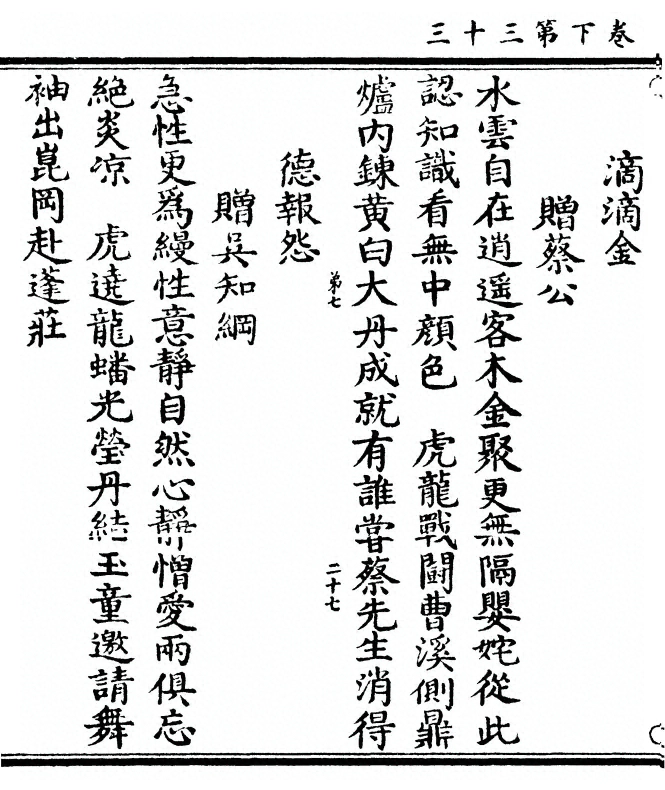 卷下第三十三
滴滴金
贈蔡公
水雲自在逍遥客木金聚更無隔嬰姹從此
認知識看無中顔色　虎龍戰鬪曹溪側鼎
爐内鍊黄白大丹成就有誰嘗蔡先生消得
第七
二十七
德報怨
贈吳知綱
急性更爲縵性意靜自然心靜憎愛兩俱忘
絶炎凉　虎遶龍蟠光瑩丹結玉童邀請舞
袖出崑岡赴蓬莊